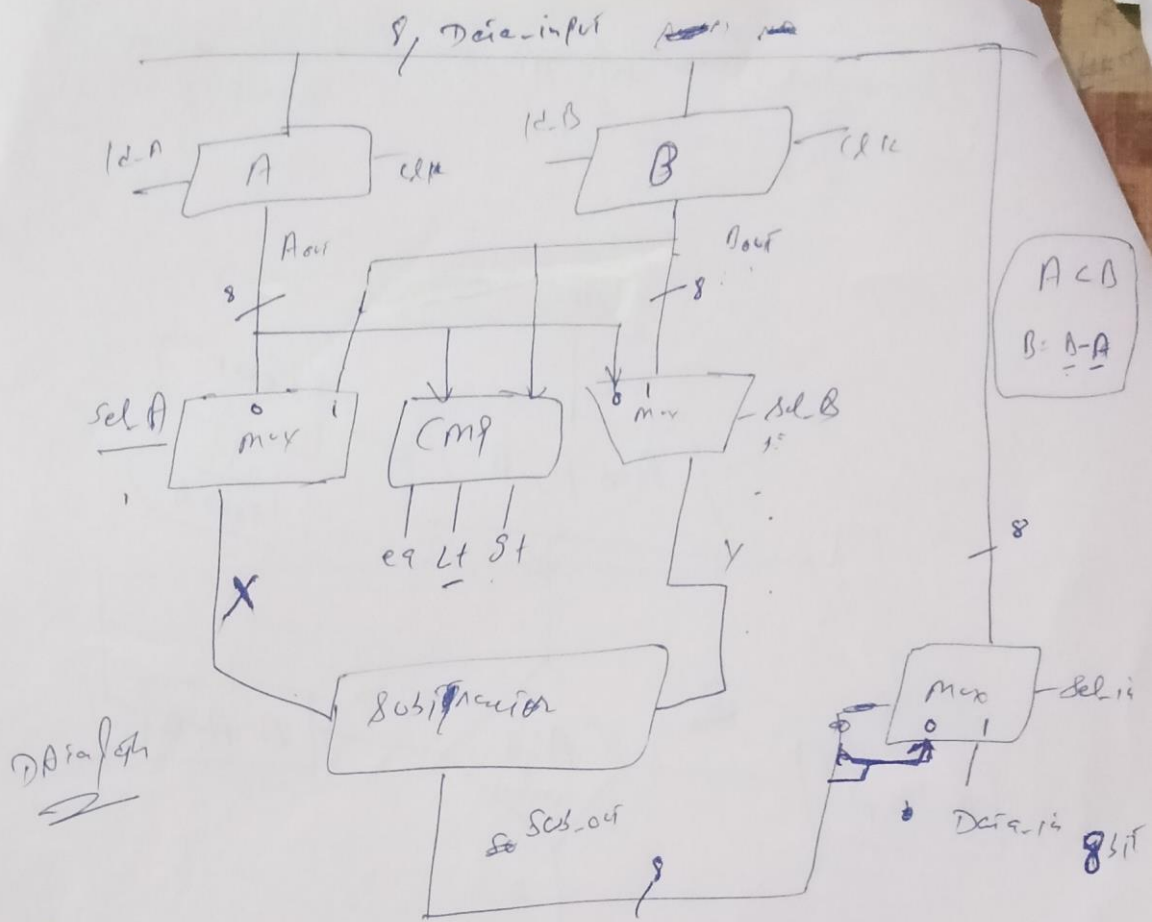 8, Data-input
ld-A
A
clk
ld-B
B
clk
Aout
Bout
8
8
A<B
B= B-A
Sel A
0
1
mux
CMP
0
1
mux
Sel B
eq
Lt
gt
X
Y
8
Subtractor
Mux
Sel-in
0
1
DAtaPath
Sub-out
Data-in
8bit
8